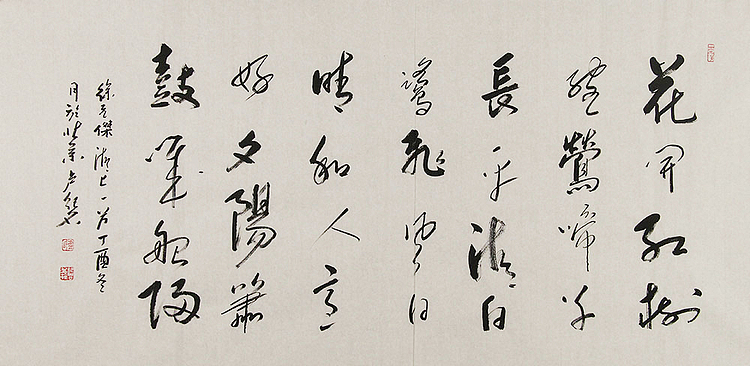 花開紅樹
亂鶯啼草
長平湖白
鷺飛風日
晴和人意
好夕陽簫
鼓幾船歸
徐元傑湖上一首丁酉冬
月於北京